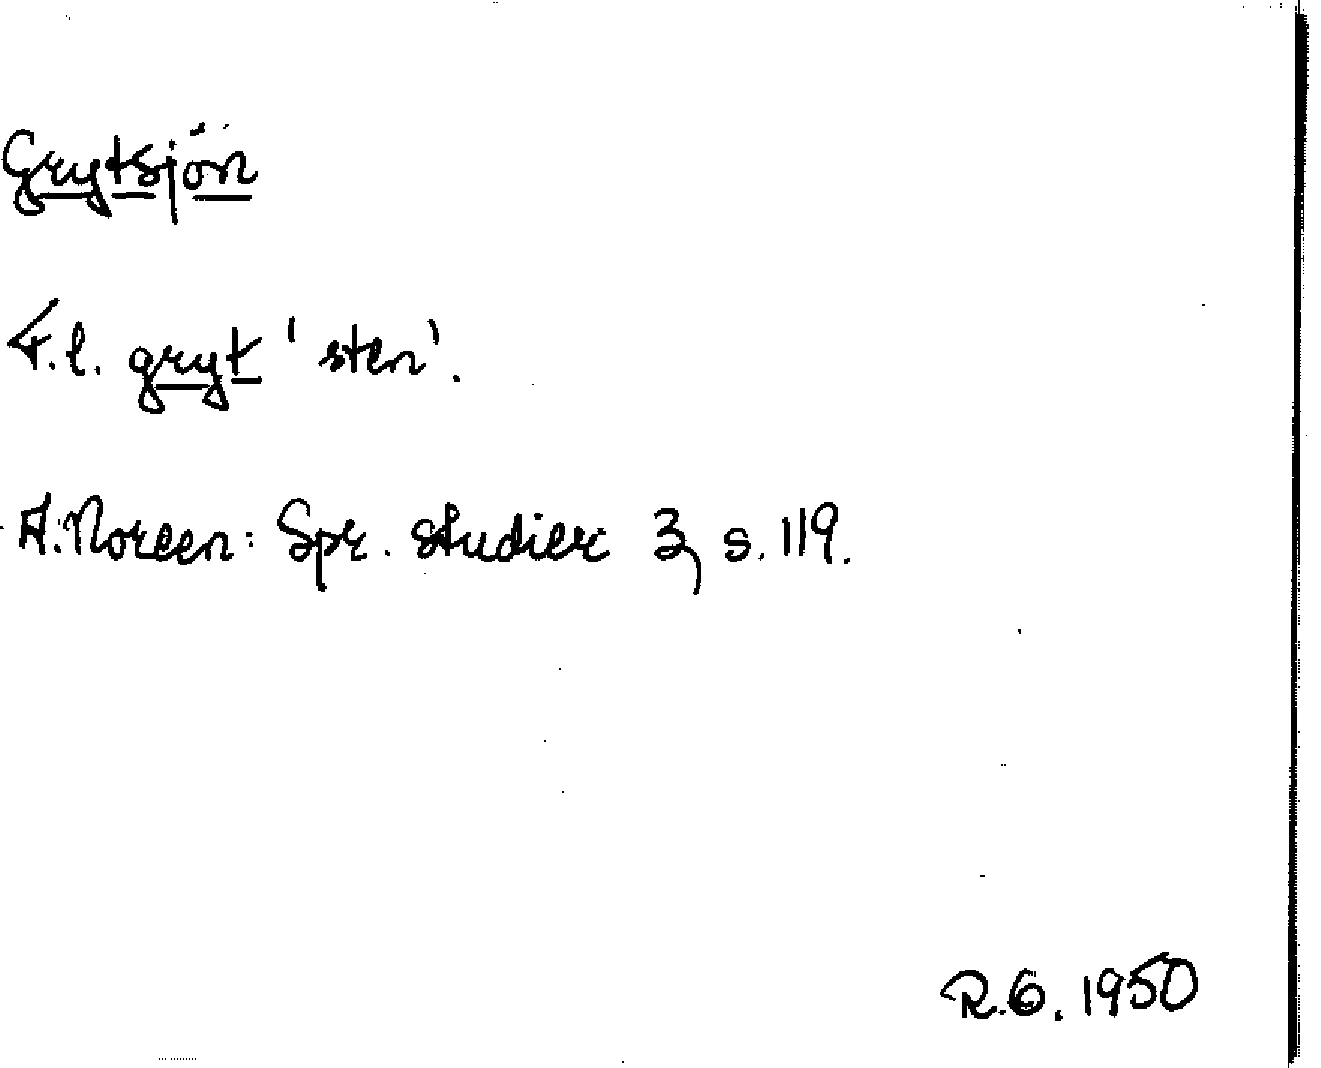 Grytsjön
F.l. gryt 'sten'.
A. Noreen: Spr. studier 3, s. 119.
R.G. 1950